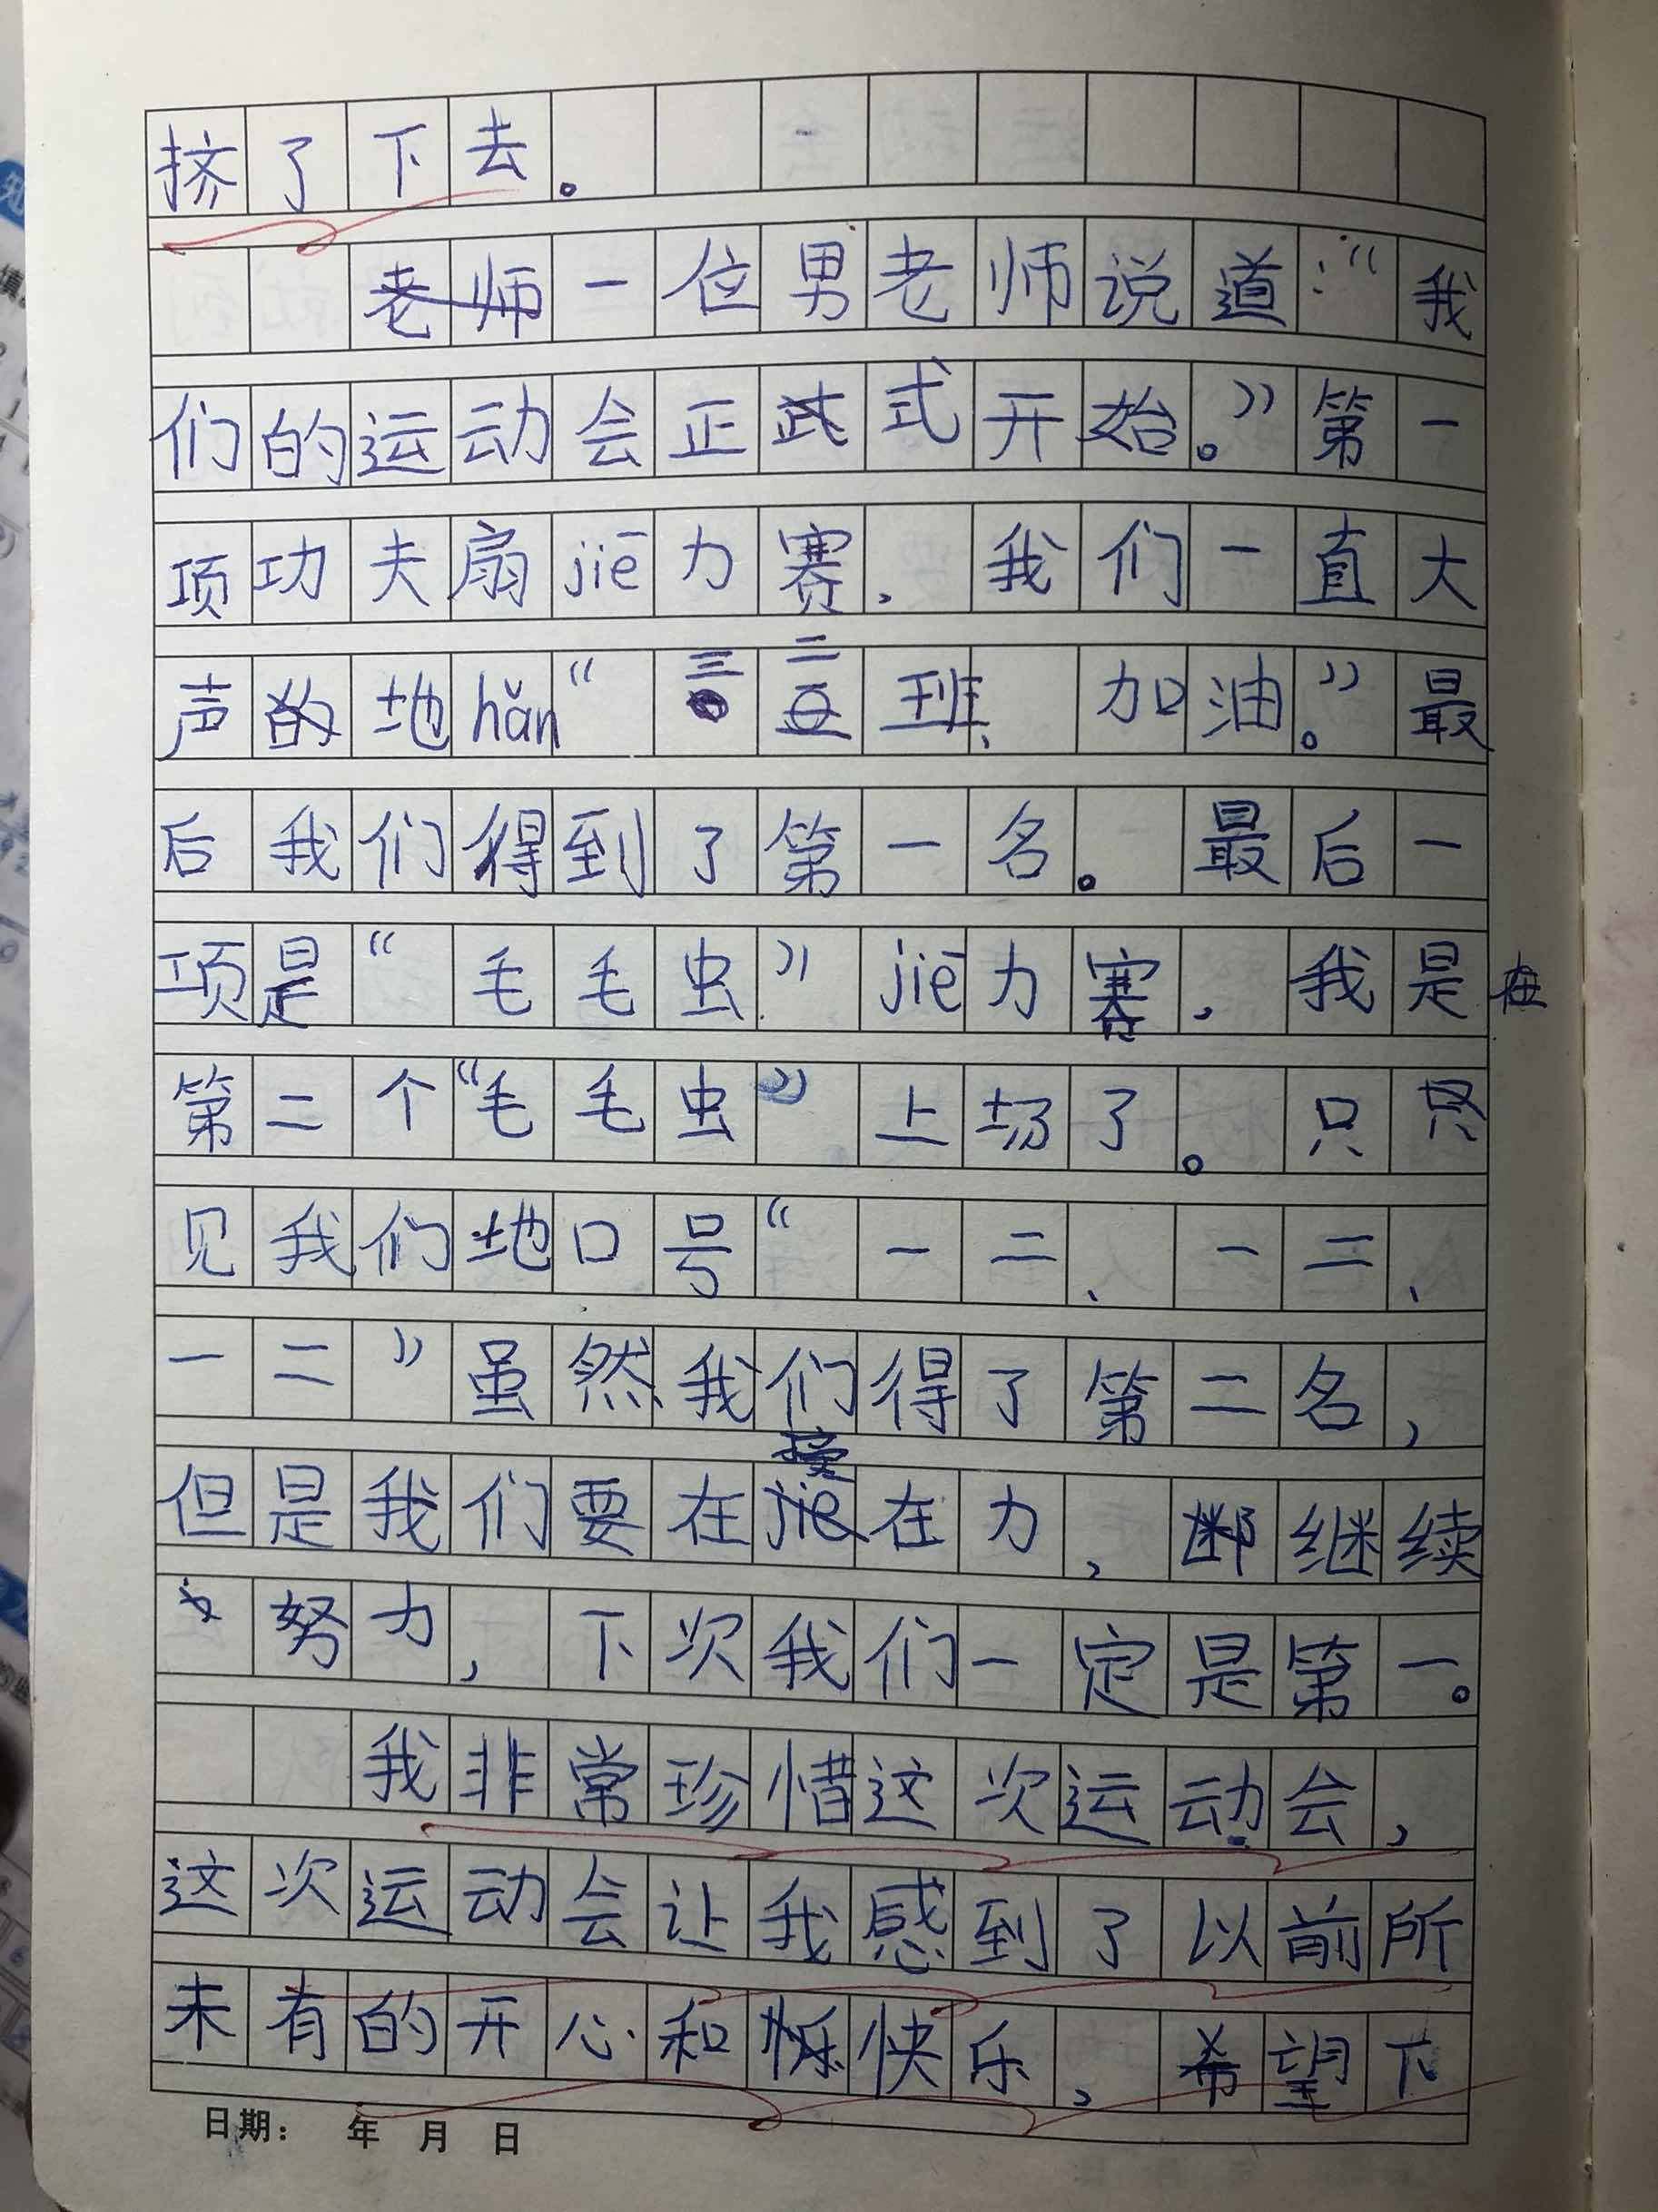 挤了下去。
一位男老师说道：“我
们的运动会正式开始。”第一
项功夫扇jiē力赛，我们一直大
声地hǎn“三二班、加油。”最
后我们得到了第一名。最后一
项是“毛毛虫”jiē力赛，我是在
第二个“毛毛虫”上场了。只
见我们地口号“一二、一二、
一二”虽然我们得了第二名，
但是我们要在接在力，继续
努力，下次我们一定是第一。
我非常珍惜这次运动会，
这次运动会让我感到了以前所
未有的开心和快乐，希望下
日期： 年 月 日